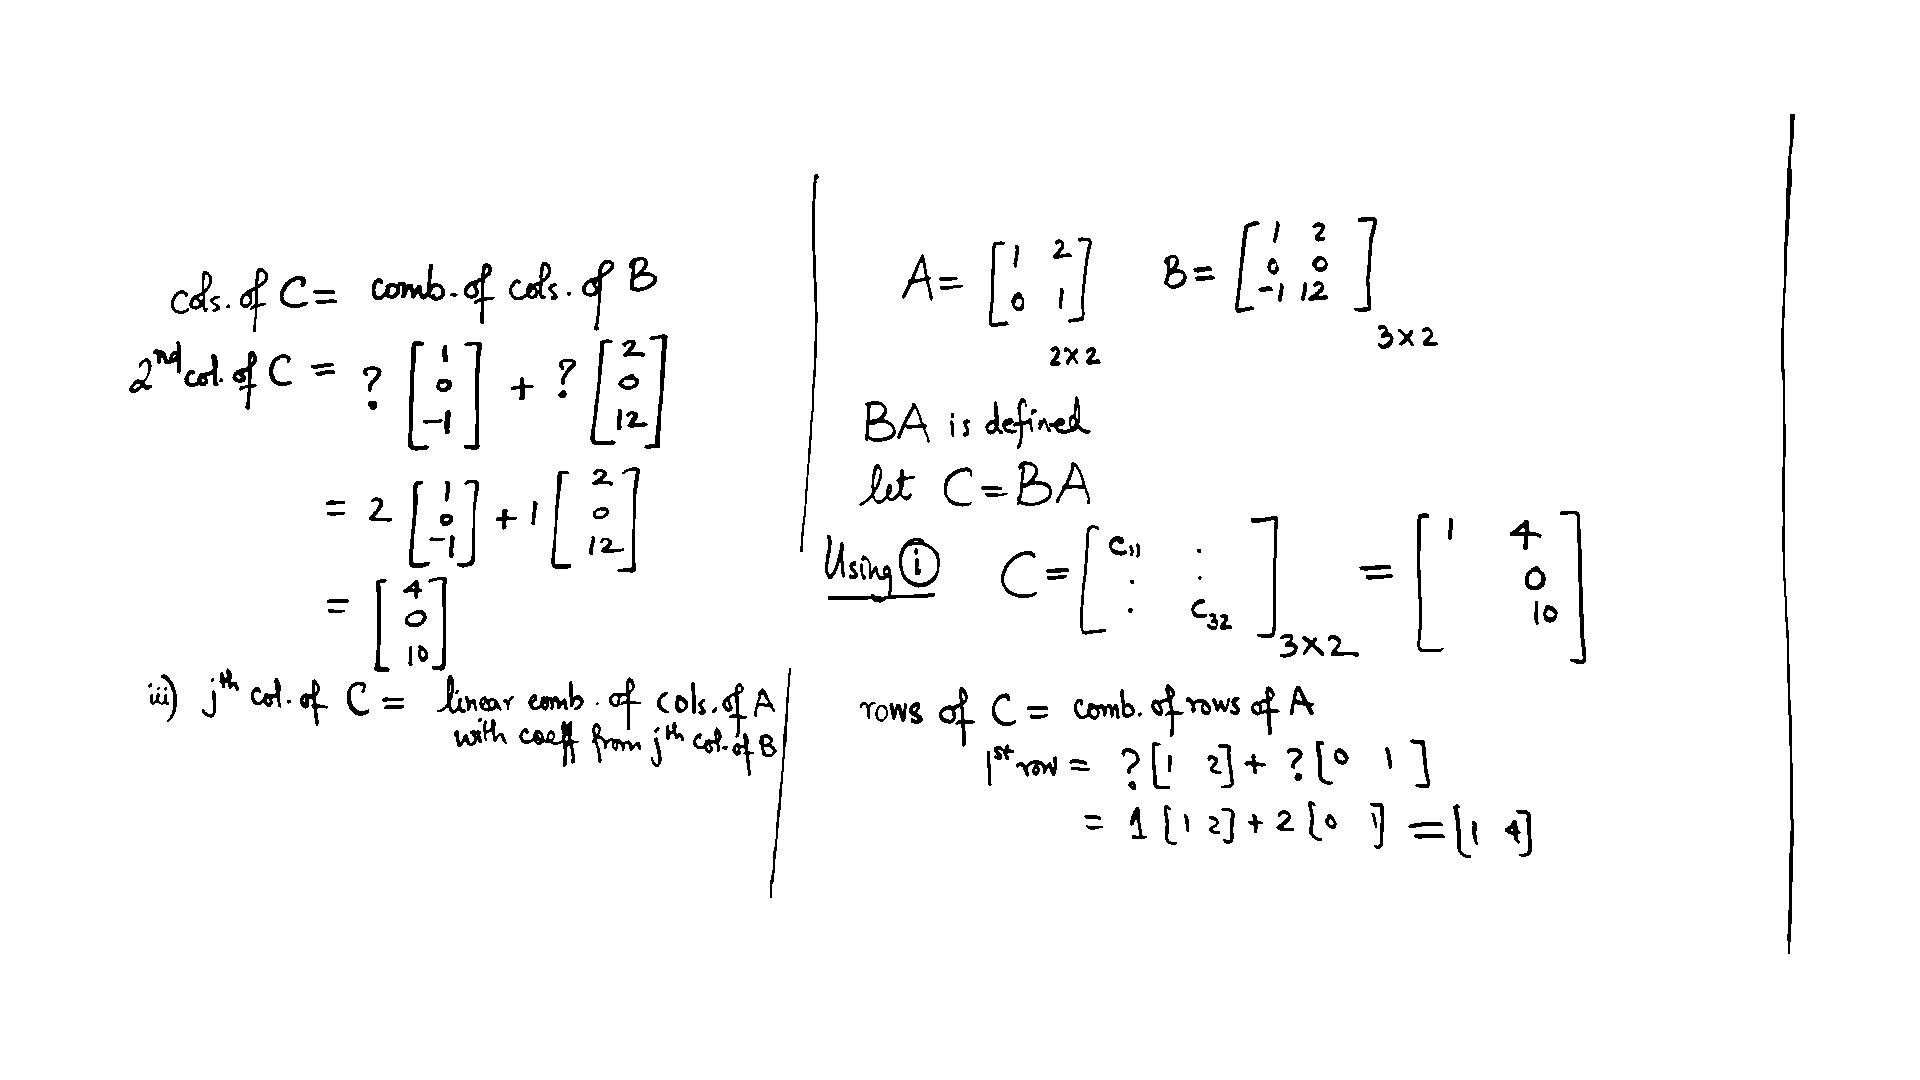 cols. of C = comb. of cols. of B
2nd col. of C = ? [1 0 -1] + ? [2 0 12]
= 2 [1 0 -1] + 1 [2 0 12]
= [4 0 10]
iii) jth col. of C = linear comb. of cols. of A
with coeff from jth col. of B
A = [1 2
0 1] 2×2
B = [1 2
0 0
-1 12] 3×2
BA is defined
let C = BA
Using (i) C = [C11 . . . . C32] 3×2 = [1 4
0
10]
rows of C = comb. of rows of A
1st row = ? [1 2] + ? [0 1]
= 1 [1 2] + 2 [0 1] = [1 4]